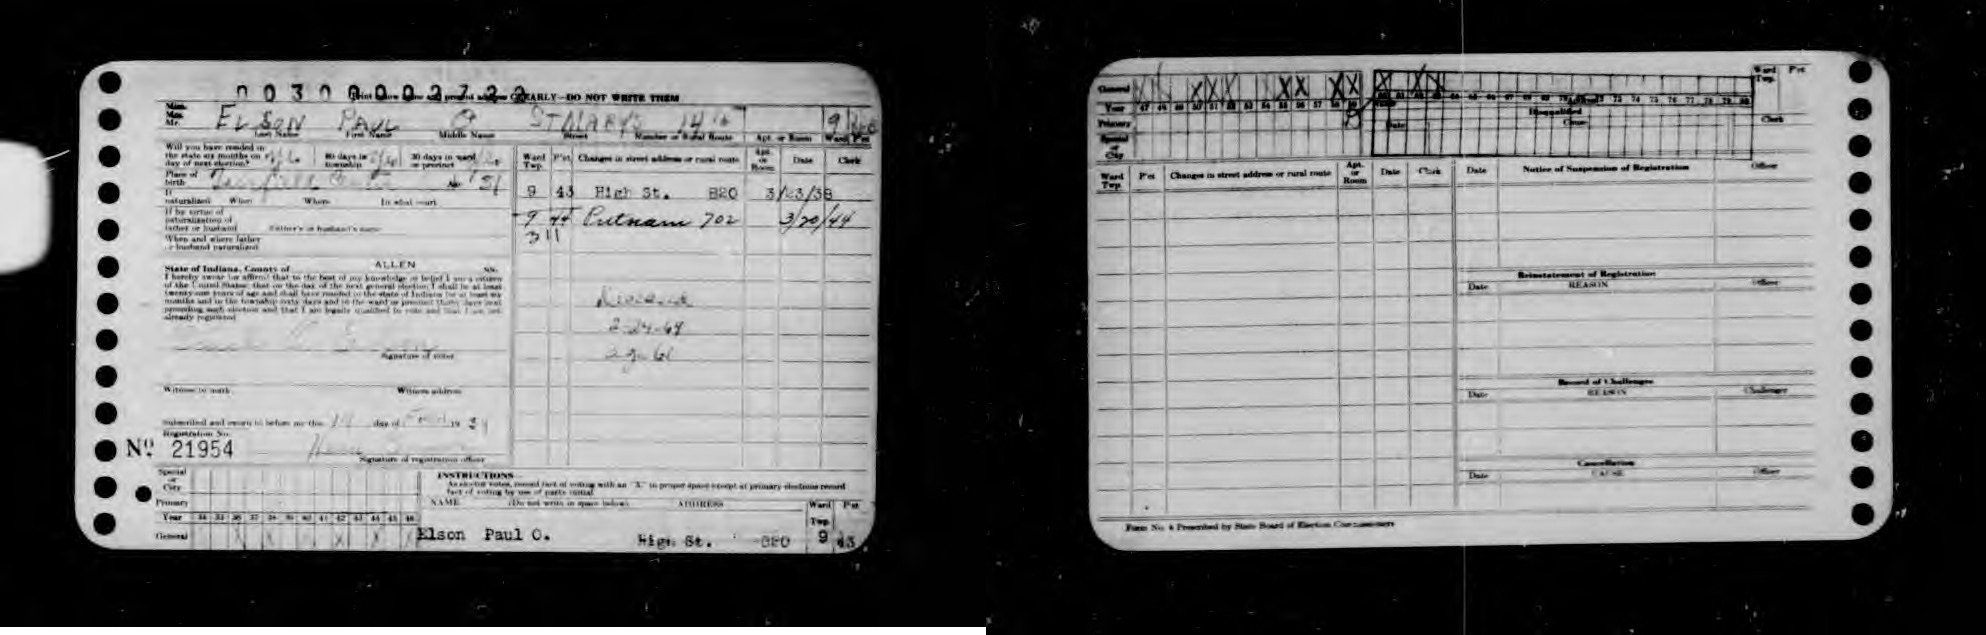 00300002722
CLEARLY—DO NOT WRITE THEM
Miss.
Mrs.
Mr.
ELSON PAUL O ST MARYS 1415 9
Last Name First Name Middle Name Street Number or Rural Route Apt. or Room Ward P'ct
Will you have resided in
the state six months on 60 days in 30 days in ward
day of next election? township or precinct
Place of
birth
If
naturalized When Where In what court
If by virtue of
naturalization of
father or husband Father's or husband's name
When and where father
or husband naturalized
State of Indiana, County of ALLEN SS:
I hereby swear (or affirm) that to the best of my knowledge or belief I am a citizen
of the United States; that on the day of the next general election I shall be at least
twenty-one years of age and shall have resided in the state of Indiana for at least six
months and in the township sixty days and in the ward or precinct thirty days next
preceding such election and that I am legally qualified to vote and that I am not
already registered
Signature of voter
Witness to mark Witness address
Subscribed and sworn to before me this day of 19
Registration No.
No. 21954
Signature of registration officer
Ward Twp. P'ct Changes in street address or rural route Apt. or Room Date Clerk
9 43 High St. 820 3/23/38
9 44 Putnam 702 3/20/44
311
Deceased
2-24-64
age 61
Special
or
City
Primary
Year 34 35 36 37 38 39 40 41 42 43 44 45 46
General X X X X X
INSTRUCTIONS
As elector votes, record fact of voting with an "X" in proper space except at primary elections record
fact of voting by use of party initial
NAME (Do not write in space below) ADDRESS Ward Twp. P'ct
Elson Paul O. High St. 820 9 43
General X X X X X X X X X X X
Year 47 48 49 50 51 52 53 54 55 56 57 58 59
Primary
Special
or
City
Date Disqualified
Cause
Ward Twp. P'ct
Clerk
Ward Twp. P'ct Changes in street address or rural route Apt. or Room Date Clerk
Date Notice of Suspension of Registration Officer
Reinstatement of Registration
Date REASON Officer
Record of Challenges
Date REASON Challenger
Cancellation
Date CAUSE Officer
Form No. 4 Prescribed by State Board of Election Commissioners